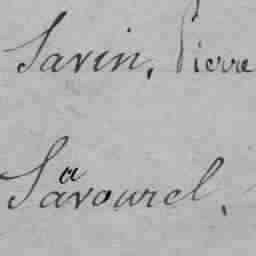 Savin, Pierre
Savourel,